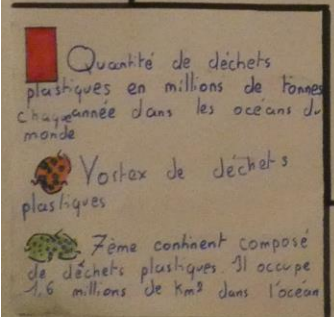 Quantité de déchets
plastiques en millions de tonnes
chaque année dans les océans du
monde
Vortex de déchets
plastiques
7ème continent composé
de déchets plastiques. Il occupe
1,6 millions de km² dans l'océan